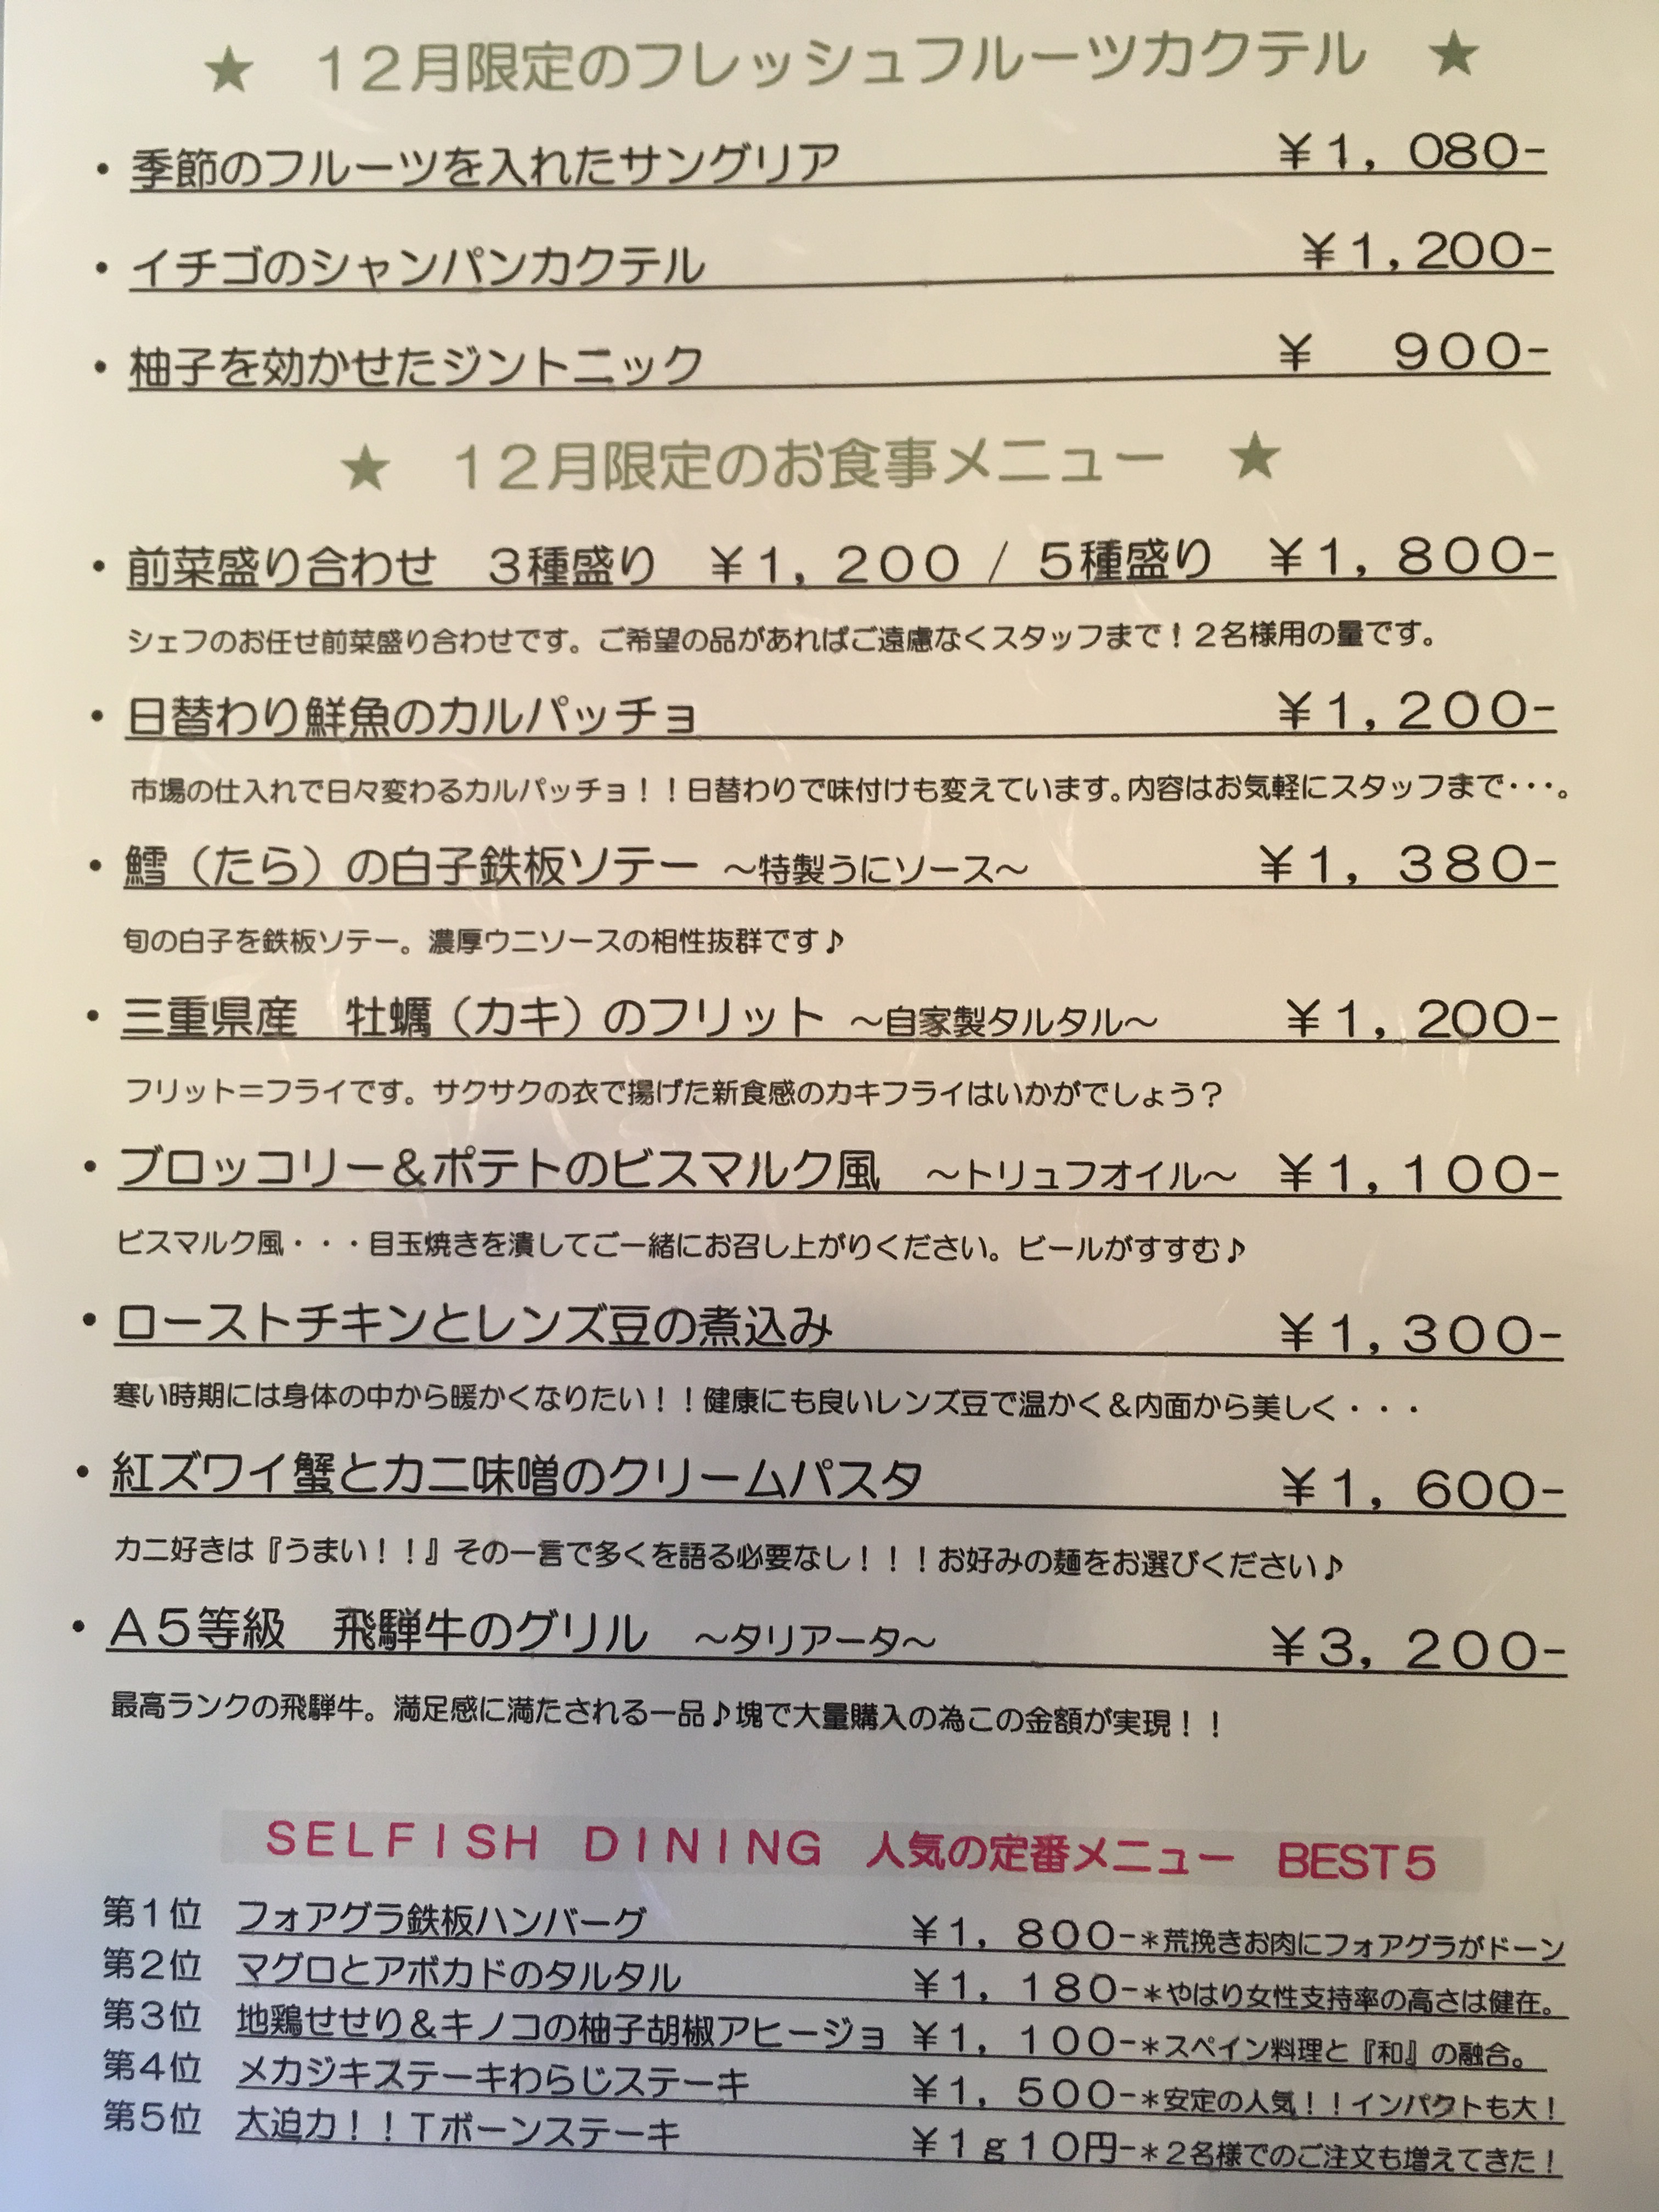 ★　１２月限定のフレッシュフルーツカクテル　★
・季節のフルーツを入れたサングリア　￥１，０８０-
・イチゴのシャンパンカクテル　￥１，２００-
・柚子を効かせたジントニック　￥　９００-
★　１２月限定のお食事メニュー　★
・前菜盛り合わせ　３種盛り　￥１，２００ / ５種盛り　￥１，８００-
シェフのお任せ前菜盛り合わせです。ご希望の品があればご遠慮なくスタッフまで！２名様用の量です。
・日替わり鮮魚のカルパッチョ　￥１，２００-
市場の仕入れで日々変わるカルパッチョ！！日替わりで味付けも変えています。内容はお気軽にスタッフまで・・・。
・鱈（たら）の白子鉄板ソテー　～特製うにソース～　￥１，３８０-
旬の白子を鉄板ソテー。濃厚ウニソースの相性抜群です♪
・三重県産　牡蠣（カキ）のフリット　～自家製タルタル～　￥１，２００-
フリット＝フライです。サクサクの衣で揚げた新食感のカキフライはいかがでしょう？
・ブロッコリー＆ポテトのビスマルク風　～トリュフオイル～　￥１，１００-
ビスマルク風・・・目玉焼きを潰してご一緒にお召し上がりください。ビールがすすむ♪
・ローストチキンとレンズ豆の煮込み　￥１，３００-
寒い時期には身体の中から暖かくなりたい！！健康にも良いレンズ豆で温かく＆内面から美しく・・・
・紅ズワイ蟹とカニ味噌のクリームパスタ　￥１，６００-
カニ好きは『うまい！！』その一言で多くを語る必要なし！！！お好みの麺をお選びください♪
・Ａ５等級　飛騨牛のグリル　～タリアータ～　￥３，２００-
最高ランクの飛騨牛。満足感に満たされる一品♪塊で大量購入の為この金額が実現！！
ＳＥＬＦＩＳＨ　ＤＩＮＩＮＧ　人気の定番メニュー　BEST５
第１位　フォアグラ鉄板ハンバーグ　￥１，８００-＊荒挽きお肉にフォアグラがドーン
第２位　マグロとアボカドのタルタル　￥１，１８０-＊やはり女性支持率の高さは健在。
第３位　地鶏せせり＆キノコの柚子胡椒アヒージョ　￥１，１００-＊スペイン料理と『和』の融合。
第４位　メカジキステーキわらじステーキ　￥１，５００-＊安定の人気！！インパクトも大！
第５位　大迫力！！Ｔボーンステーキ　￥１ｇ１０円-＊２名様でのご注文も増えてきた！